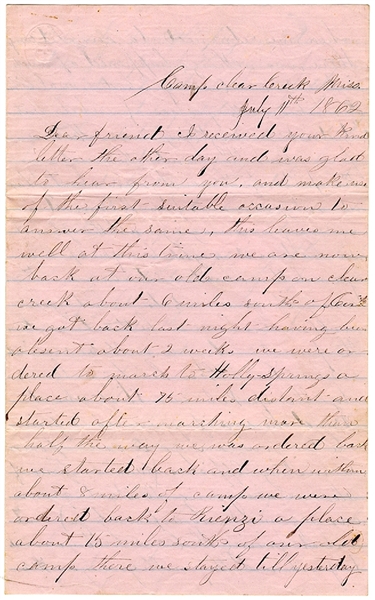 Camp clear Creek Miss.
July 11th 1862
Dear friend I received your kind
letter the other day and was glad
to hear from you, and make use
of the first suitable occasion to
answer the same, this leaves me
well at this time we are now
back at our old camp on clear
creek about 6 miles south of
we got back last night having been
absent about 2 weeks we were or
dered to march to Holly Springs a
place about 75 miles distant and
started after marching more then
half the way we was ordered back
we started back and when within
about 8 miles of camp we were
ordered back to Rienzi a place
about 15 miles south of our old
camp there we stayed till yesterday